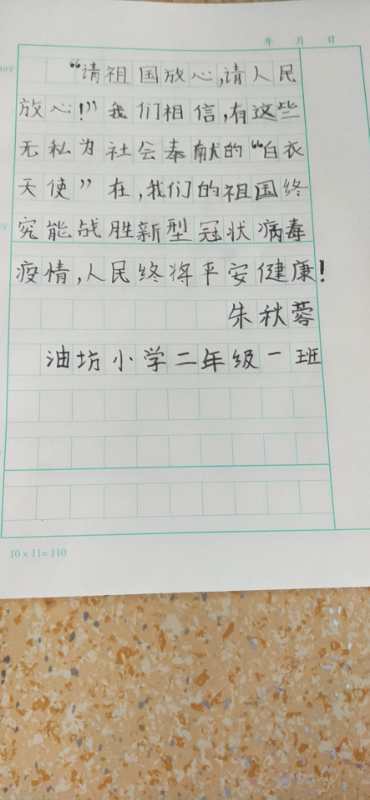 年 月 日
“请祖国放心,请人民
放心!”我们相信,有这些
无私为社会奉献的“白衣
天使”在,我们的祖国终
究能战胜新型冠状病毒
疫情,人民终将平安健康!
朱秋蓉
油坊小学二年级一班
10×11=110